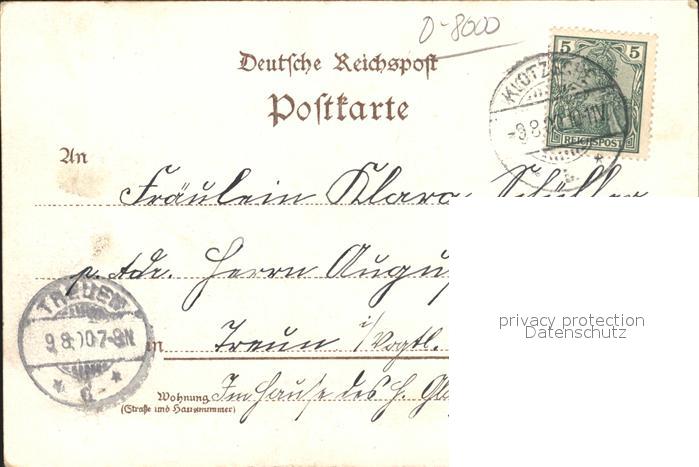 D-8000
Deutsche Reichspost
Postkarte
5 5
REICHSPOST
KLOTZSCHE
-9.8.00 10-11V
An
Fräulein Klara Schüller
p. Adr. Herrn Augu
TREUEN
9 8 00 7-8N
d
in Treun i/Vogtl.
privacy protection
Datenschutz
Wohnung Im Hause des H. Gl
(Straße und Hausnummer)